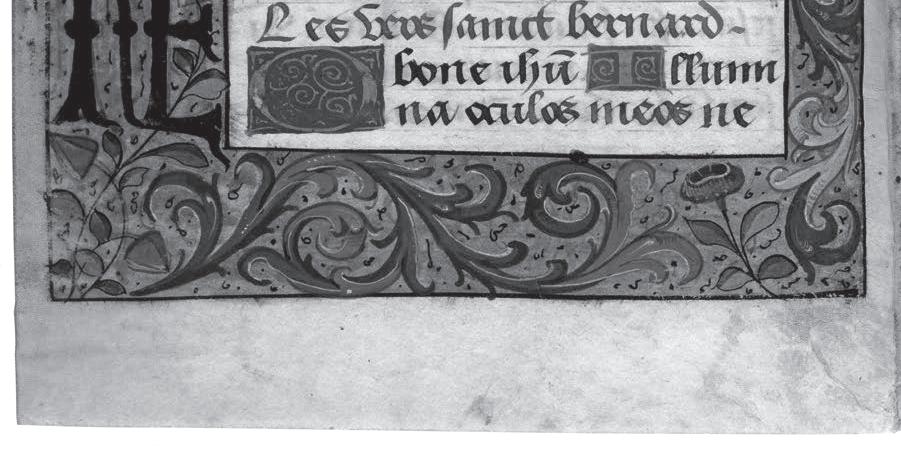 Les vers sainct bernard
O bone ihū Illumi
na oculos meos ne